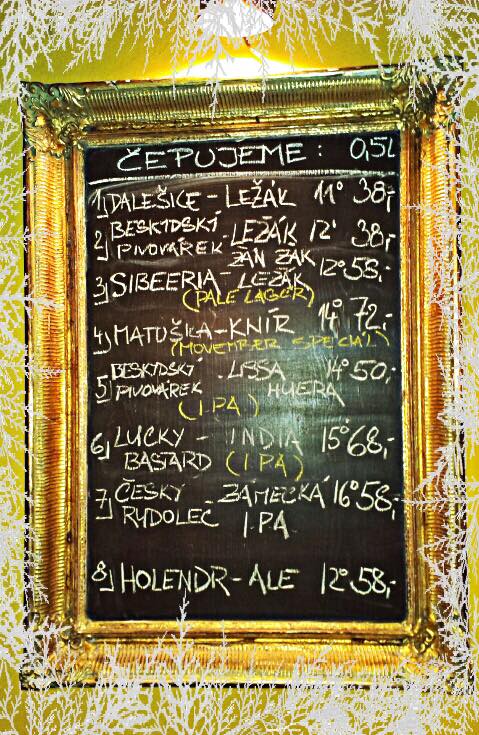 ČEPUJEME: 0,5L
1) DALEŠICE - LEŽÁK 11° 38,-
2) BESKIDSKÝ PIVOVÁREK - LEŽÁK 12° 38,-
ŽÁN ŽAK
3) SIBEERIA - LEŽÁK 12° 53,-
(PALE LAGER)
4) MATUŠKA - KNÍR 14° 72,-
(MOVEMBER SPECIAL)
5) BESKIDSKÝ PIVOVÁREK - LISSA HUERA 14° 50,-
(IPA)
6) LUCKY BASTARD - INDIA 15° 68,-
(IPA)
7) ČESKÝ RYDOLEC - ZÁMECKÁ IPA 16° 58,-
8) HOLENDR - ALE 12° 58,-